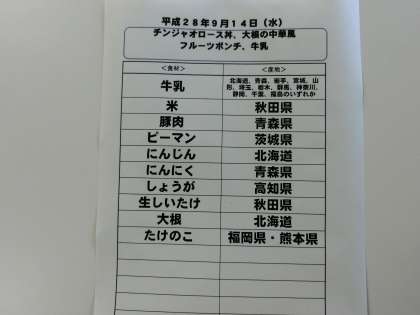 平成２８年９月１４日（水）
チンジャオロース丼、大根の中華風
フルーツポンチ、牛乳
＜食材＞ ＜産地＞
牛乳 北海道、青森、岩手、宮城、山
形、埼玉、栃木、群馬、神奈川、
静岡、千葉、福島のいずれか
米 秋田県
豚肉 青森県
ピーマン 茨城県
にんじん 北海道
にんにく 青森県
しょうが 高知県
生しいたけ 秋田県
大根 北海道
たけのこ 福岡県・熊本県